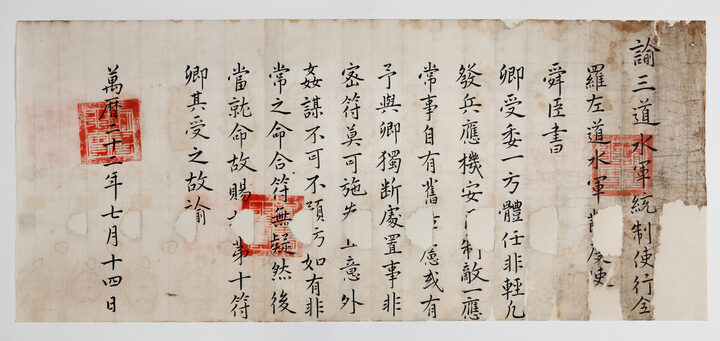 諭三道水軍統制使行全
羅左道水軍度使
舜臣書
卿受委一方體任非輕凡
發兵應機安制敵一應
常事自有舊慮或有
予與卿獨斷處置事非
密符莫可施意外
姦謀不可不預如有非
常之命合符無疑然後
當就命故賜第十符
卿其受之故諭
萬曆二十二年七月十四日